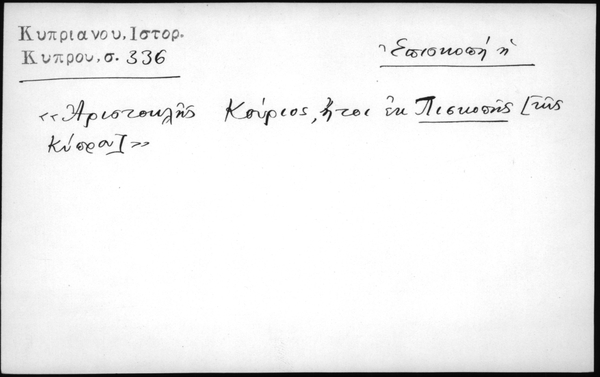 Κυπριανου, Ιστορ.
Κυπρου, σ. 336
Ἐπισκοπή ἡ
«Ἀριστοκλῆς Κούριος, ἤτοι ἐκ Πισκοπῆς [τῆς
Κύπρου]»